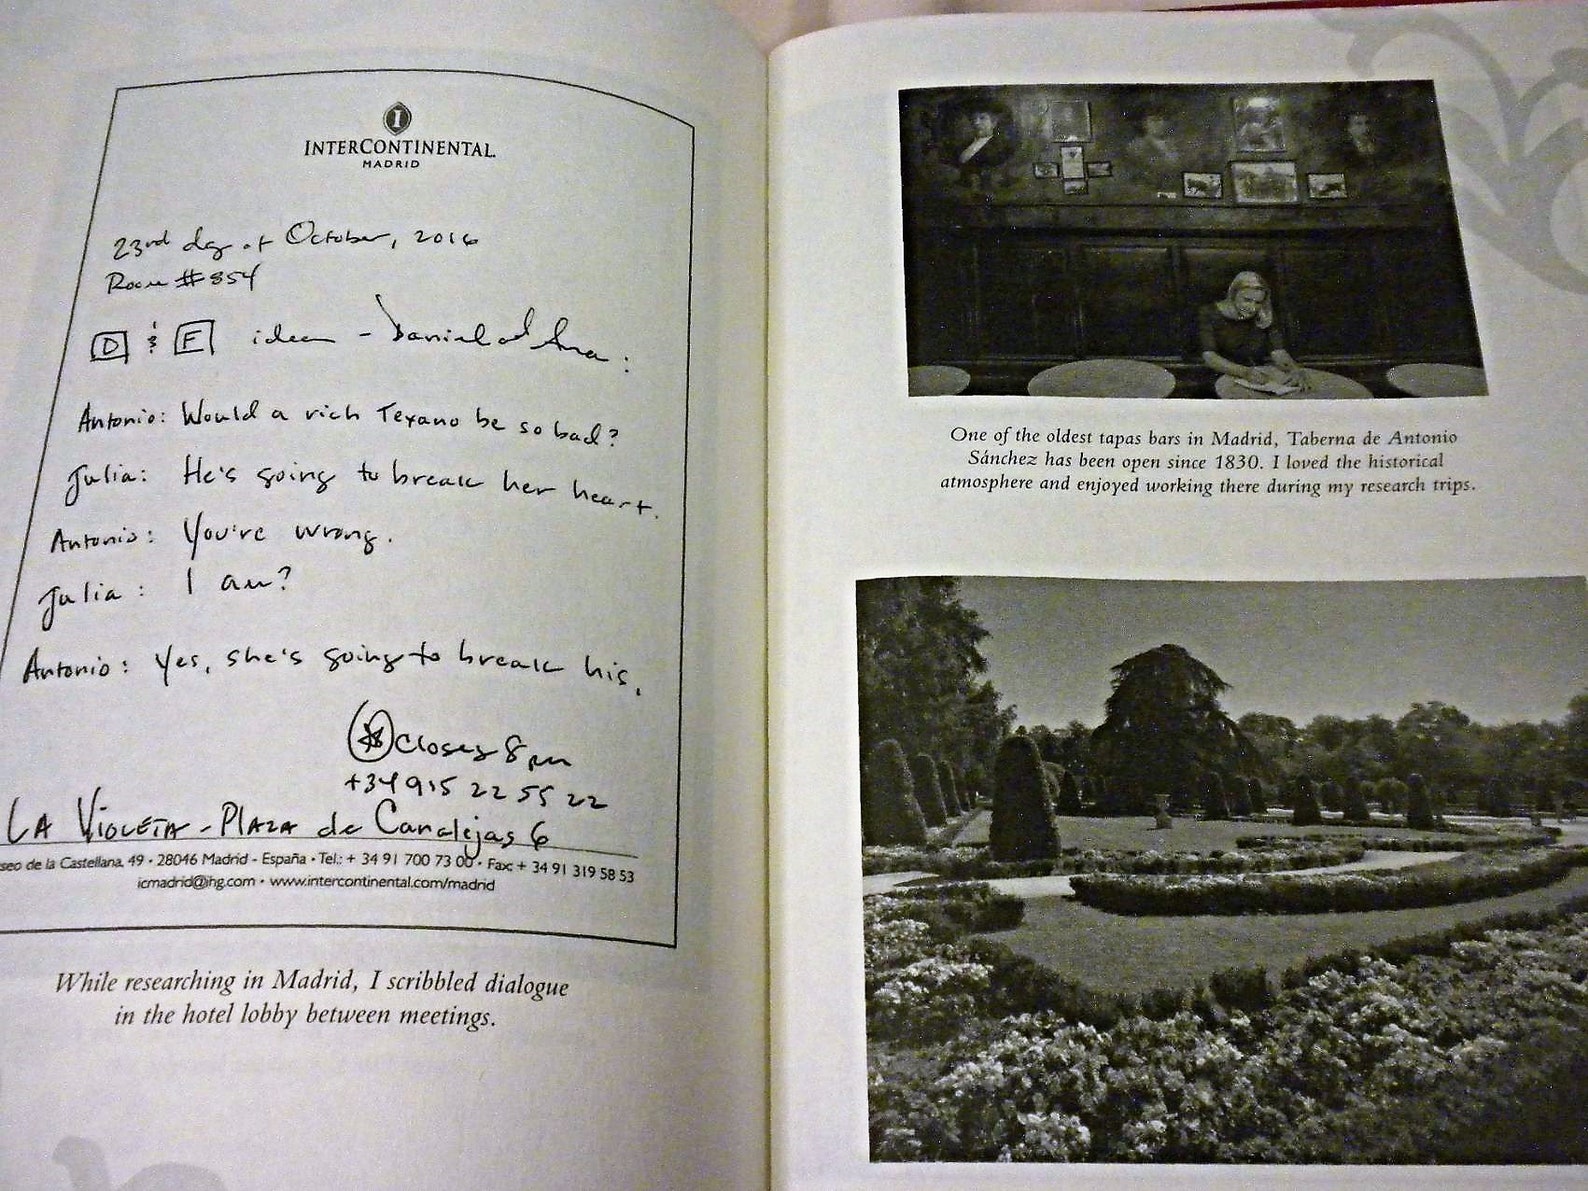 I
INTERCONTINENTAL
MADRID
23rd day of October, 2016
Room #854
D & F idea - Daniel and Ana:
Antonio: Would a rich Texano be so bad?
Julia: He's going to break her heart.
Antonio: You're wrong.
Julia: I am?
Antonio: Yes, she's going to break his.
closes 8pm
+34 915 22 55 22
LA VIOLETA - PLAZA de Canalejas 6
seo de la Castellana, 49 • 28046 Madrid - España • Tel.: + 34 91 700 73 00 • Fax: + 34 91 319 58 53
icmadrid@ihg.com • www.intercontinental.com/madrid
While researching in Madrid, I scribbled dialogue
in the hotel lobby between meetings.
One of the oldest tapas bars in Madrid, Taberna de Antonio
Sánchez has been open since 1830. I loved the historical
atmosphere and enjoyed working there during my research trips.